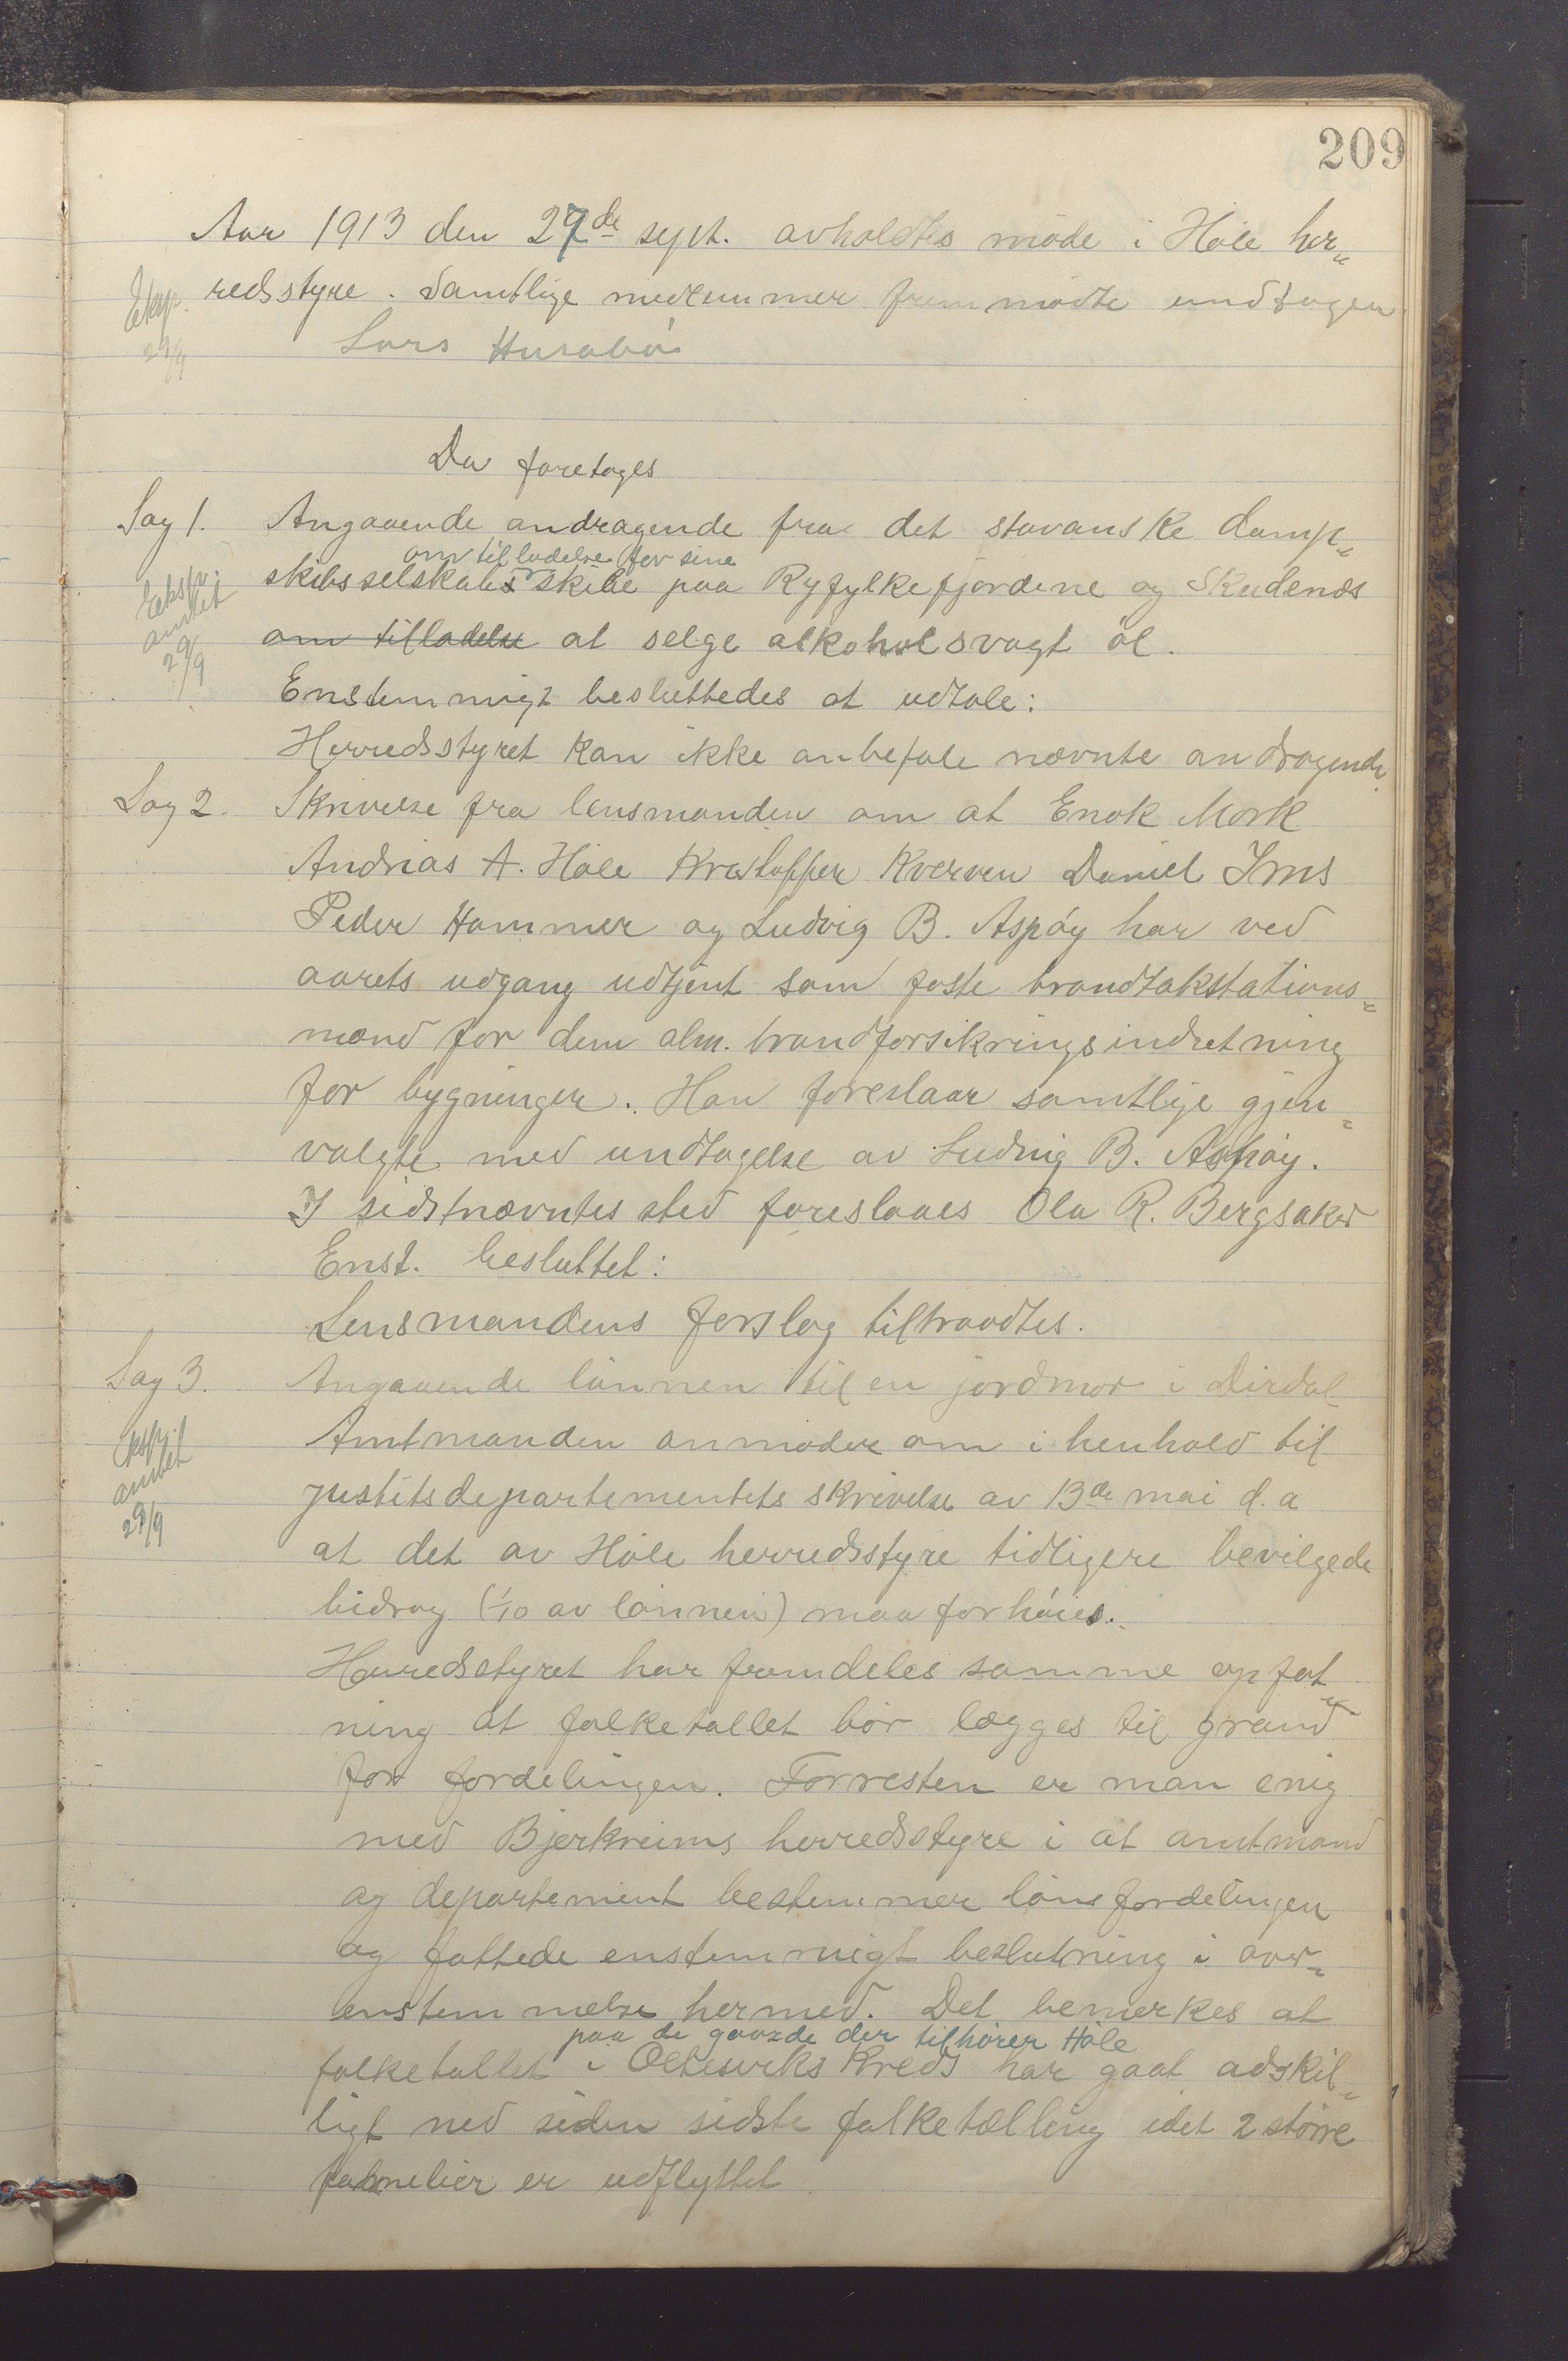 209
Aar 1913 den 27de sept. avholdtes møde i Høle her=
redsstyre. Samtlige medlemmer fremmødte undtagen
Eksp.
29/9
Lars Husabø
Da foretoges
Sag 1. Angaaende andragende fra det stavanske damp=
om tilladelse for sine
skibsselskabs skibe paa Ryfylkefjordene og Skudenæs
Eksp.
amtet
29/9
om tilladelse at selge alkoholsvagt øl.
Enstemmigt besluttedes at udtale:
Herredsstyret kan ikke anbefale nævnte andragende.
Sag 2. Skrivelse fra lensmanden om at Enok Mørk
Andrias A. Høle Kristoffer Kverven Daniel Ims
Peder Hammer og Ludvig B. Aspøy har ved
aarets udgang udtjent som faste brandtakstations=
mænd for den alm. brandforsikringsindretning
for bygninger. Han foreslaar samtlige gjen=
valgte med undtagelse av Ludvig B. Aspøy.
I sidstnævntes sted foreslaaes Ola R. Bergsaker
Enst. besluttet:
Lensmandens forslag tiltraadtes.
Sag 3. Angaaende lønnen til en jordmor i Dirdal
Amtmanden anmoder om i henhold til
Eksp.
amtet
29/9
justitsdepartementets skrivelse av 13de mai d.a
at det av Høle herredsstyre tidligere bevilgede
bidrag (1/10 av lønnen) maa forhøies.
Herredsstyret har fremdeles samme opfat=
ning at folketallet bør lægges til grund
for fordelingen. Forresten er man enig
med Bjerkreims herredsstyre i at amtmand
og departement bestemmer lønsfordelingen
og fattede enstemmigt beslutning i over=
enstemmelse hermed. Det bemerkes at
paa de gaarde der tilhører Høle
folketallet i Oltesviks Kreds har gaat adskil=
ligt ned siden sidste folketælling idet 2 større
familier er udflyttet